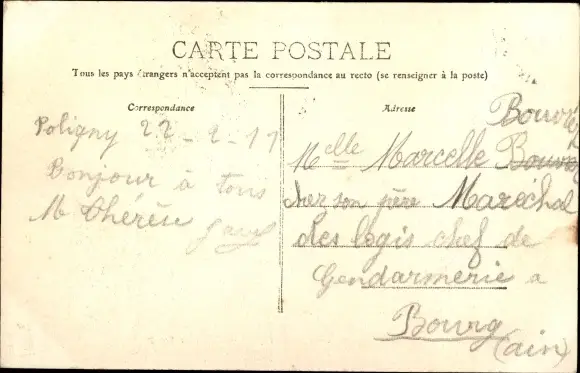 CARTE POSTALE
Tous les pays étrangers n'acceptent pas la correspondance au recto (se renseigner à la poste)
Correspondance
Poligny 22-2-11
Bonjour à tous
M Thérèse
Adresse
Melle Marcelle
chez son père Maréchal
des logis chef de
Gendarmerie a
Bourg
(ain)